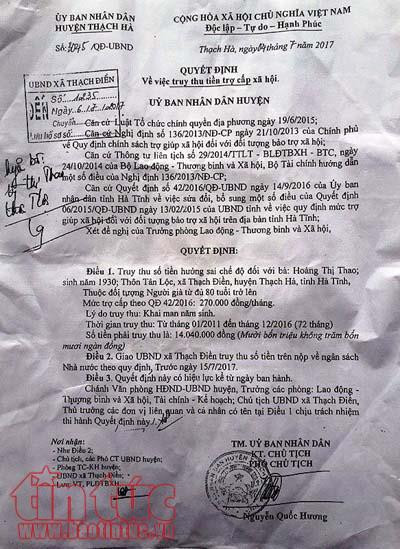 ỦY BAN NHÂN DÂN
HUYỆN THẠCH HÀ
CỘNG HÒA XÃ HỘI CHỦ NGHĨA VIỆT NAM
Độc lập - Tự do - Hạnh Phúc
Số: /QĐ-UBND
Thạch Hà, ngày tháng 7 năm 2017
QUYẾT ĐỊNH
Về việc truy thu tiền trợ cấp xã hội.
UBND XÃ THẠCH ĐIỀN
ĐẾN
Số
Ngày
Chuyển
Lưu hồ sơ số
ỦY BAN NHÂN DÂN HUYỆN
Căn cứ Luật Tổ chức chính quyền địa phương ngày 19/6/2015;
Căn cứ Nghị định số 136/2013/NĐ-CP ngày 21/10/2013 của Chính phủ
về Quy định chính sách trợ giúp xã hội đối với đối tượng bảo trợ xã hội;
Căn cứ Thông tư liên tịch số 29/2014/TTLT - BLĐTBXH - BTC, ngày
24/10/2014 của Bộ Lao động - Thương binh và Xã hội, Bộ Tài chính hướng dẫn
một số điều của Nghị định 136/2013/NĐ-CP;
Căn cứ Quyết định số 42/2016/QĐ-UBND ngày 14/9/2016 của Ủy ban
nhân dân tỉnh Hà Tĩnh về việc sửa đổi, bổ sung một số điều của Quyết định
06/2015/QĐ-UBND ngày 13/02/2015 của UBND tỉnh về việc quy định mức trợ
giúp xã hội đối với đối tượng bảo trợ xã hội trên địa bàn tỉnh Hà Tĩnh;
Xét đề nghị của Trưởng phòng Lao động - Thương binh và Xã hội,
QUYẾT ĐỊNH:
Điều 1. Truy thu số tiền hưởng sai chế độ đối với bà: Hoàng Thị Thao;
sinh năm 1930; Thôn Tân Lộc, xã Thạch Điền, huyện Thạch Hà, tỉnh Hà Tĩnh,
Thuộc đối tượng Người già từ đủ 80 tuổi trở lên
Mức trợ cấp theo QĐ 42/2016: 270.000 đồng/tháng.
Lý do truy thu: Khai man năm sinh.
Thời gian truy thu: Từ tháng 01/2011 đến tháng 12/2016 (72 tháng)
Số tiền phải truy thu là: 14.040.000 đồng (Mười bốn triệu không trăm bốn
mươi ngàn đồng)
Điều 2. Giao UBND xã Thạch Điền truy thu số tiền trên nộp về ngân sách
Nhà nước theo quy định, Trước ngày 15/7/2017.
Điều 3. Quyết định này có hiệu lực kể từ ngày ban hành.
Chánh Văn phòng HĐND-UBND huyện, Trưởng các phòng: Lao động -
Thương binh và Xã hội, Tài chính - Kế hoạch; Chủ tịch UBND xã Thạch Điền,
Thủ trưởng các đơn vị liên quan và cá nhân có tên tại Điều 1 chịu trách nhiệm
thi hành Quyết định này./.
Nơi nhận:
- Như Điều 2;
- Chủ tịch, các Phó CT UBND huyện;
- Phòng TC-KH huyện;
- UBND xã Thạch Điền;
- Lưu VT, PLĐTBXH.
TM. ỦY BAN NHÂN DÂN
KT. CHỦ TỊCH
PHÓ CHỦ TỊCH
Nguyễn Quốc Hương
tin tức
www.baotintuc.vn